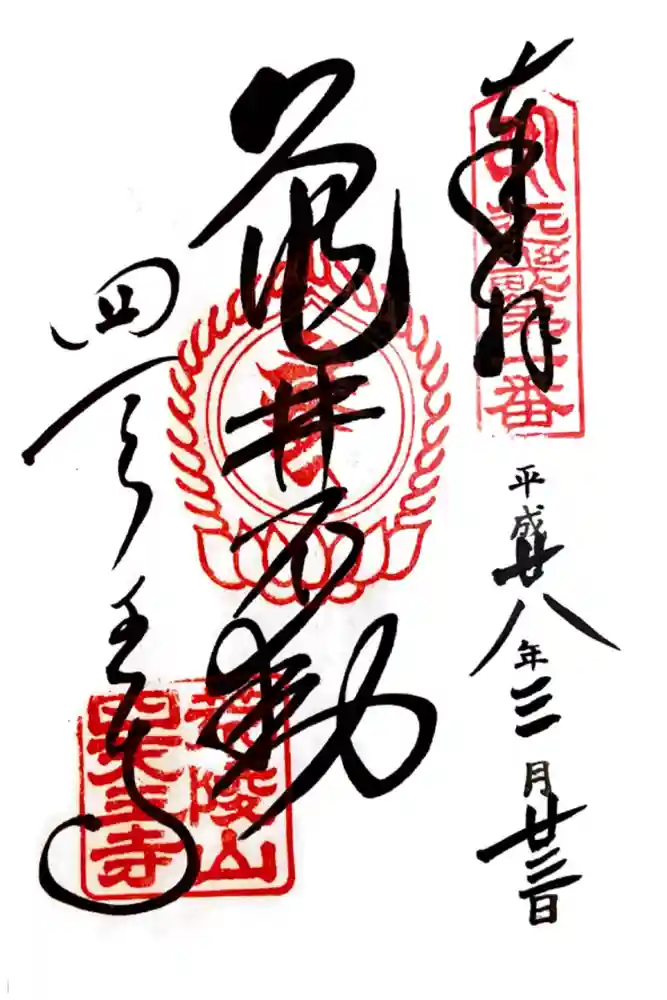 奉拝
第一番
平成廿八年三月廿三日
亀井不動
四天王寺
荒陵山
四天王寺